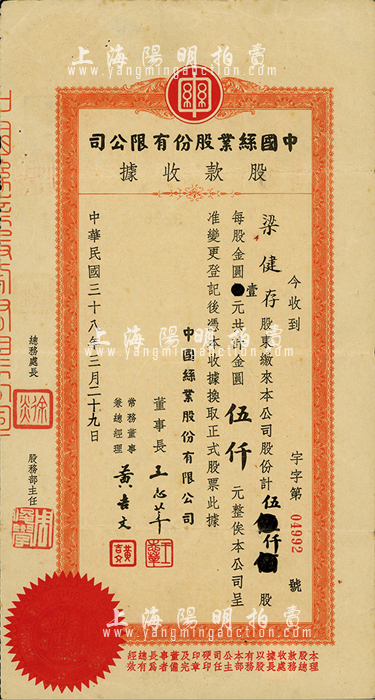 上海陽明拍賣
www.yangmingauction.com
中國絲業股份有限公司
股款收據
字字第 04992 號
今收到
梁健存 股東繳來本公司股份計 伍仟 股
每股金圓壹元共計金圓 伍仟 元整俟本公司呈
准變更登記後憑本收據換取正式股票此據
中國絲業股份有限公司
董事長
常務董事兼總經理 黃吉文
中華民國三十八年三月二十九日
總務處長
股務部主任
本股款收據以本公司硬印及董事長總經理
總務處長股務部主任印章完備者為有效
上海陽明拍賣
www.yangmingauction.com